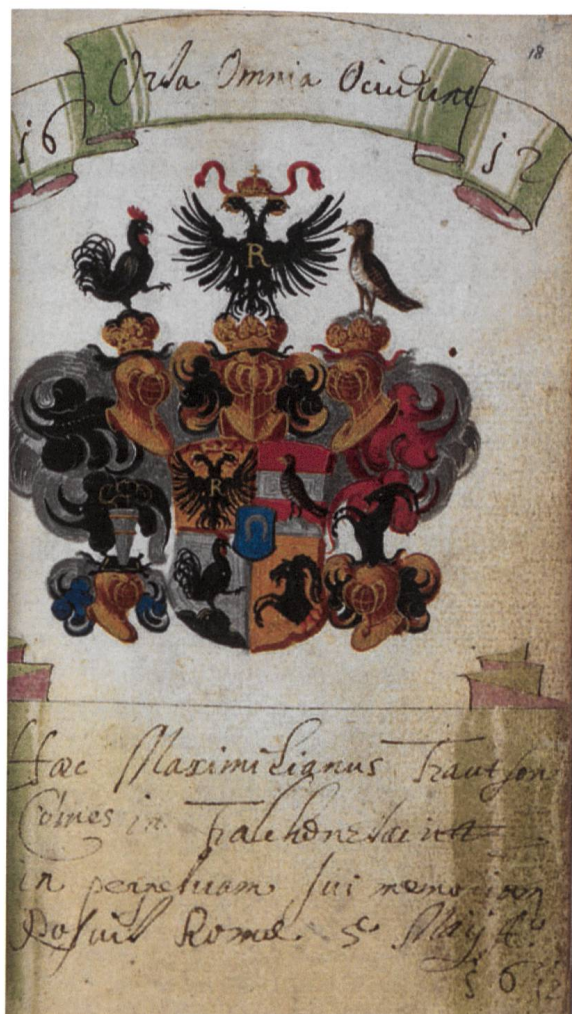 18
Orta Omnia Occidunt
16 12
R
R
Hæc Maximilianus Trautson
Comes in
in perpetuam sui memoriam
Posuit Romæ 5 Maij Aº
16 12